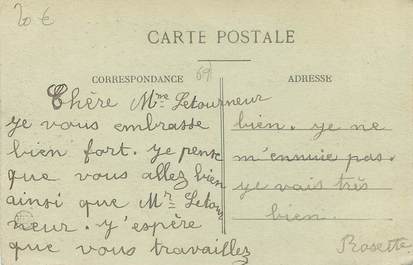 20 €
CARTE POSTALE
69
CORRESPONDANCE
ADRESSE
Chère Mme Letourneur
je vous embrasse
bien fort. je pense
que vous allez bien
ainsi que Mr Letour
neur. j'espère
que vous travaillez
bien. je ne
m'ennuie pas.
je vais très
bien.
Rosette